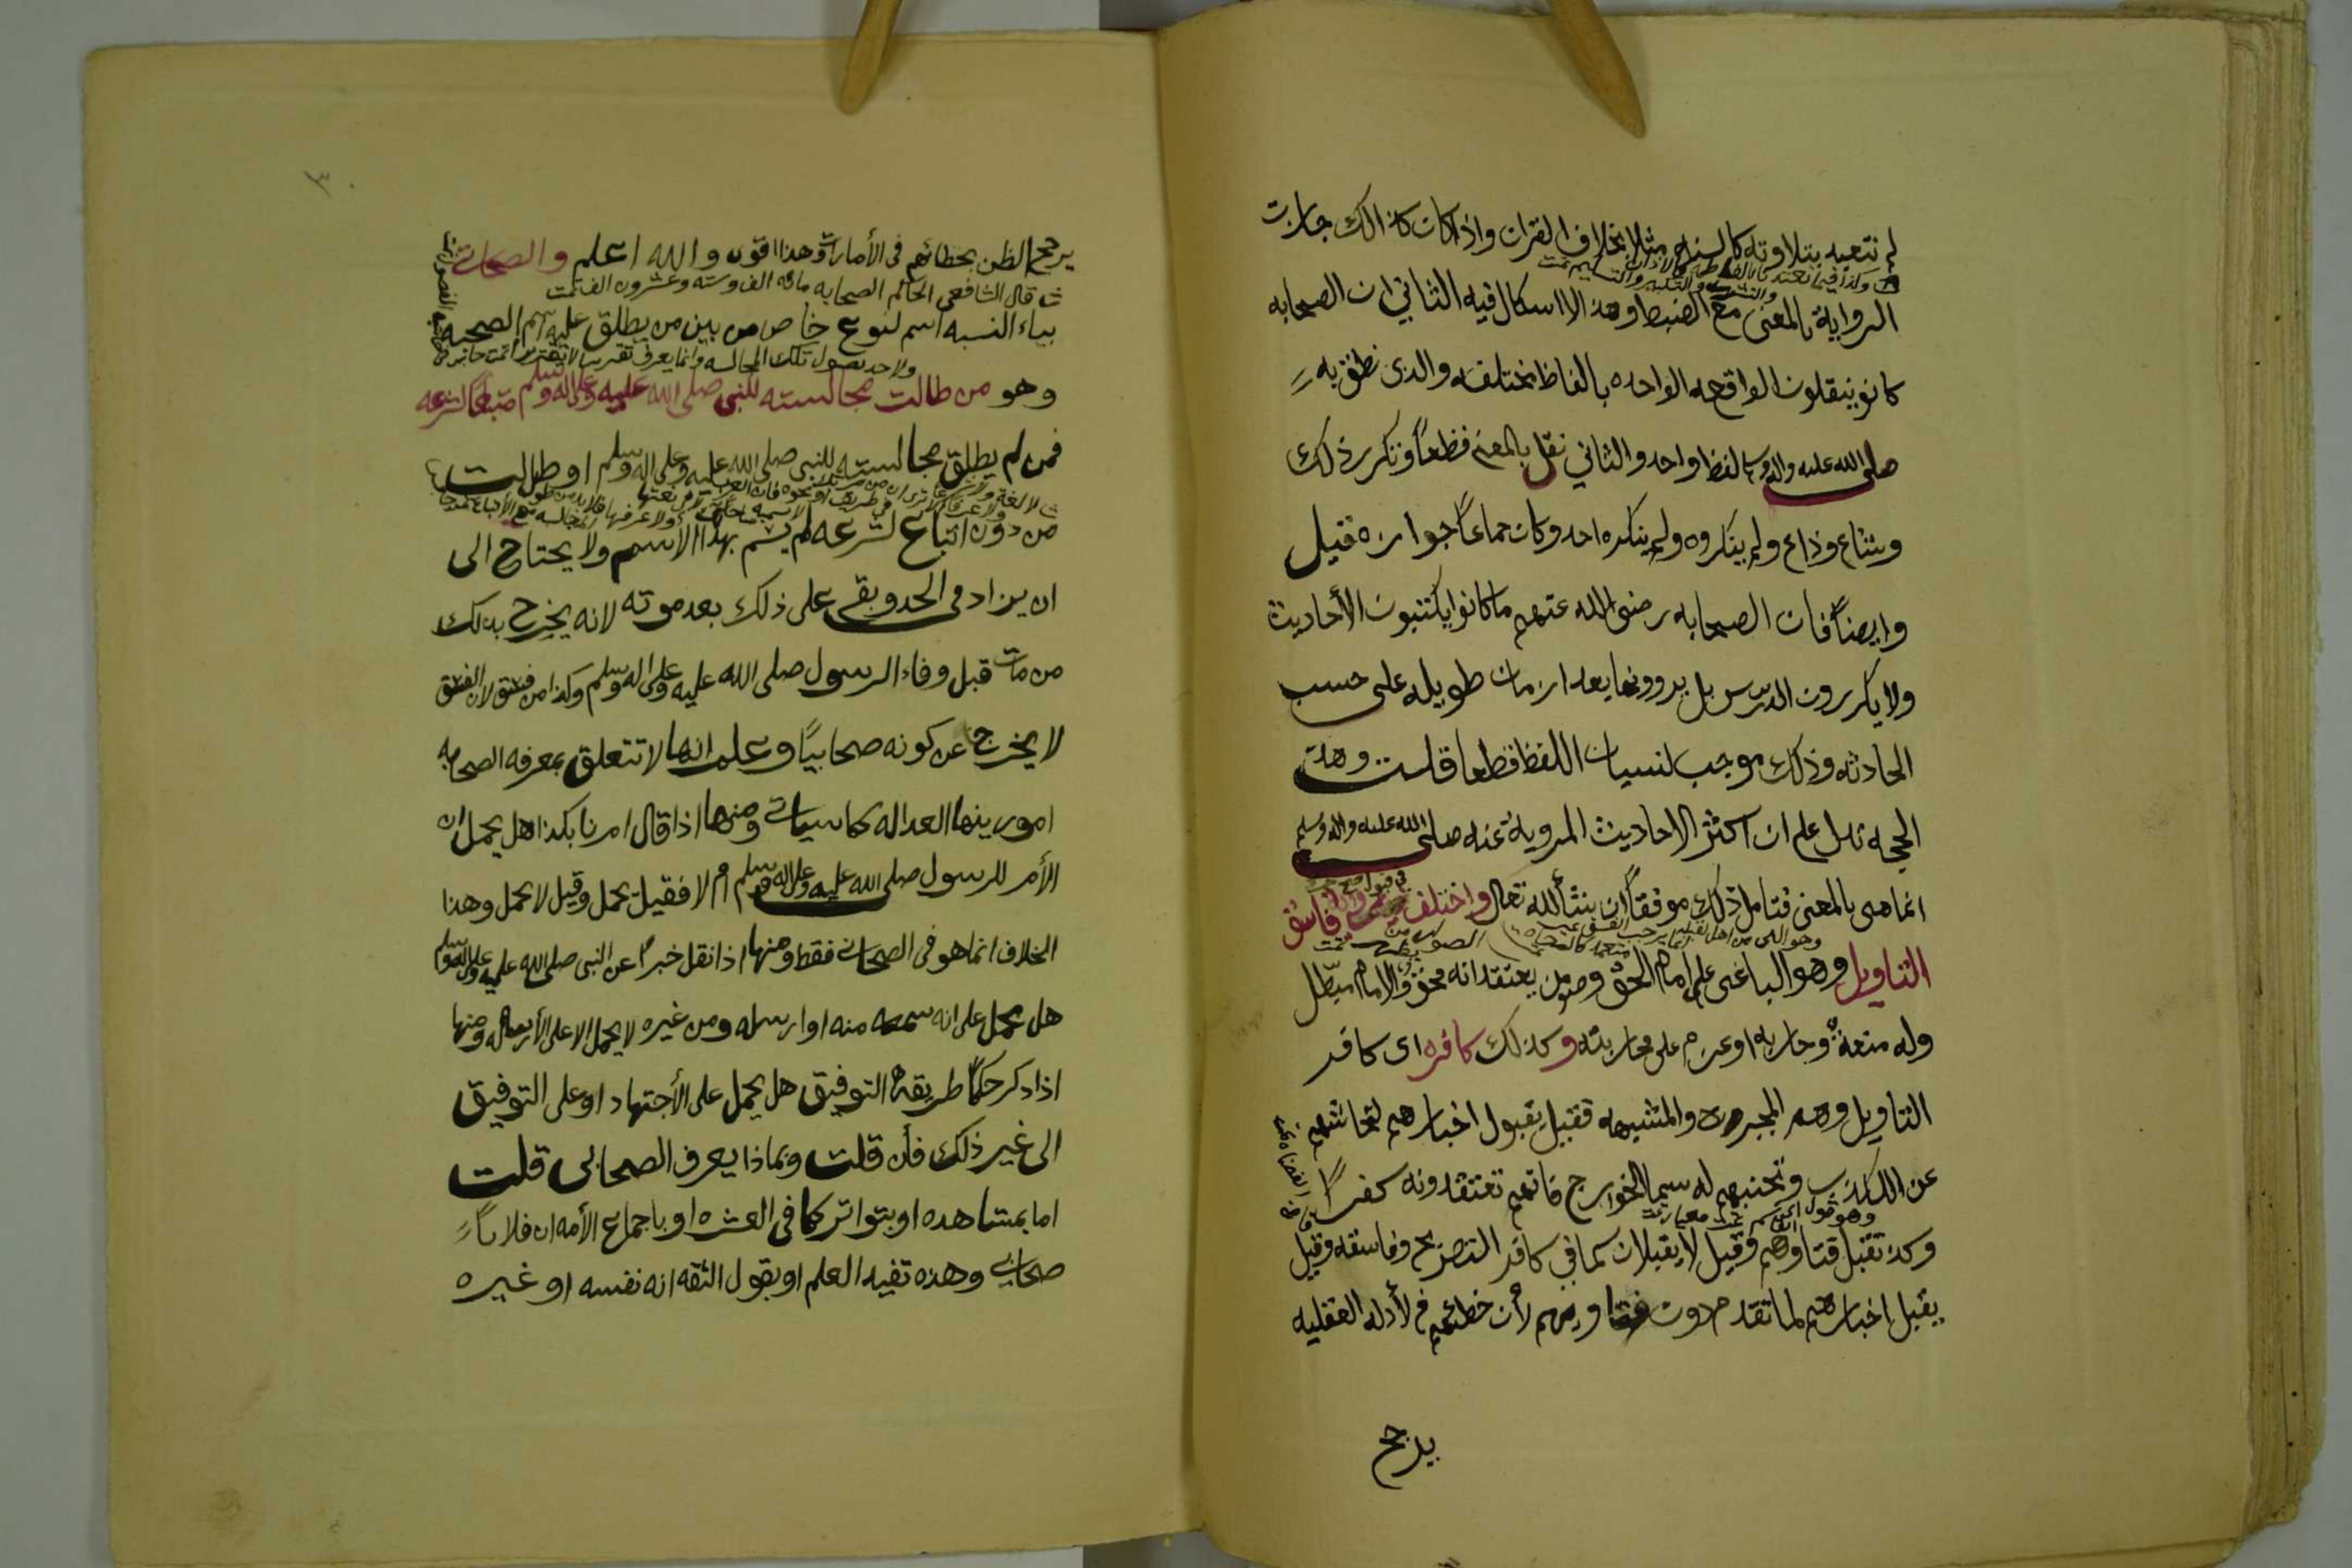 لم نتعبد بتلاوته كالسنه مثلا بخلاف القران واذا كان كذالك جازت
وكذا فيما تعبدنا بالفاظه كالاذان
والتشهد والتكبير والتسليم تمت
الروايه بالمعنى مع الضبط وهذا لا اسكال فيه الثاني ان الصحابه
كانو ينقلون الواقعه الواحده بالفاظ مختلفه والذى نطق به
صلى الله عليه واله وسلم لفظ واحد والثاني نقل بالمعنى قطعاً وتكرر ذلك
وشاع وذاع ولم ينكروه ولم ينكره احد وكان جماعاً جوازه قيل
وايضاً فان الصحابه رضى الله عنهم ما كانوا يكتبون الأحاديث
ولا يكررون الدرس بل يروونها بعد ازمان طويله على حسب
الحادثه وذلك موجب لنسيان اللفظ قطعا قلت وهذه
الحجه تدل على ان اكثر الاحاديث المرويه عنه صلى الله عليه واله وسلم
انما هى بالمعنى فتامل ذلك موفقاً ان شأ الله تعال واختلف فاسق
التاويل وهو الباغى على امام الحق ومن يعتقد انه محق والامام مبطل
وله منعة وحاربه او عزم على محاربته وكذلك كافره اى كافر
التاويل وهم المجبره والمشبهه فقيل يقبول اخبارهم لتحاشيهم
عن الكذب وتجنبهم له سيما الخوارج فانهم تعتقدونه كفراً
وكذ تقبل فتاوهم وقيل لا يقبلان كما في كافر التصريح وفاسقه وقيل
يقبل اخبارهم لما تقدم دون فتاويهم لأن خطئهم في الأدله العقليه
يرجح
٣٠
يرجح الظن بخطائهم فى الأمارات وهذا اقوى والله اعلم والصحابي
قال الشافعى الحاكم الصحابه مائه الف وسته وعشرون الف تمت
بياء النسبه اسم لنوع خاص من بين من يطلق عليه اسم الصحبه
ولا حد لطول تلك المجالسه وانما يعرف تقريبا لا تحقيقا تمت
وهو من طالت مجالسته للنبى صلى الله عليه وعلى اله وسلم متبعاً لشرعه
فمن لم يطلق مجالسته للنبى صلى الله عليه وعلى اله وسلم او طالت
من دون اتباع لشرعه لم يسم بهذا الاسم ولا يحتاج الى
ان يزاد فى الحد وبقى على ذلك بعد موته لانه يخرج بذلك
من مات قبل وفاء الرسول صلى الله عليه وعلى اله وسلم وكذا من فسق لان الفسق
لا يخرج عن كونه صحابياً وعلم انها لا تتعلق بمعرفه الصحابه
امور ينها العداله كما سيات ومنها اذا قال امرنا بكذا هل يحمل ان
الأمر للرسول صلى الله عليه وعلى اله وسلم ام لا فقيل يحمل وقيل لا يحمل وهذا
الخلاف انما هو فى الصحابي فقط ومنها اذا نقل خبراً عن النبى صلى الله عليه وعلى اله وسلم
هل يحمل على انه سمعه منه او ارسله ومن غيره لا يحمل الا على الأرسال ومنها
اذا دكر حكماً طريقه التوفيق هل يحمل على الأجتهاد او على التوفيق
الى غير ذلك فأن قلت وبماذا يعرف الصحابى قلت
اما بمشاهده او بتواتر كما فى العشره او باجماع الأمه ان فلاناً
صحابي وهذه تفيد العلم او بقول الثقه انه نفسه او غيره